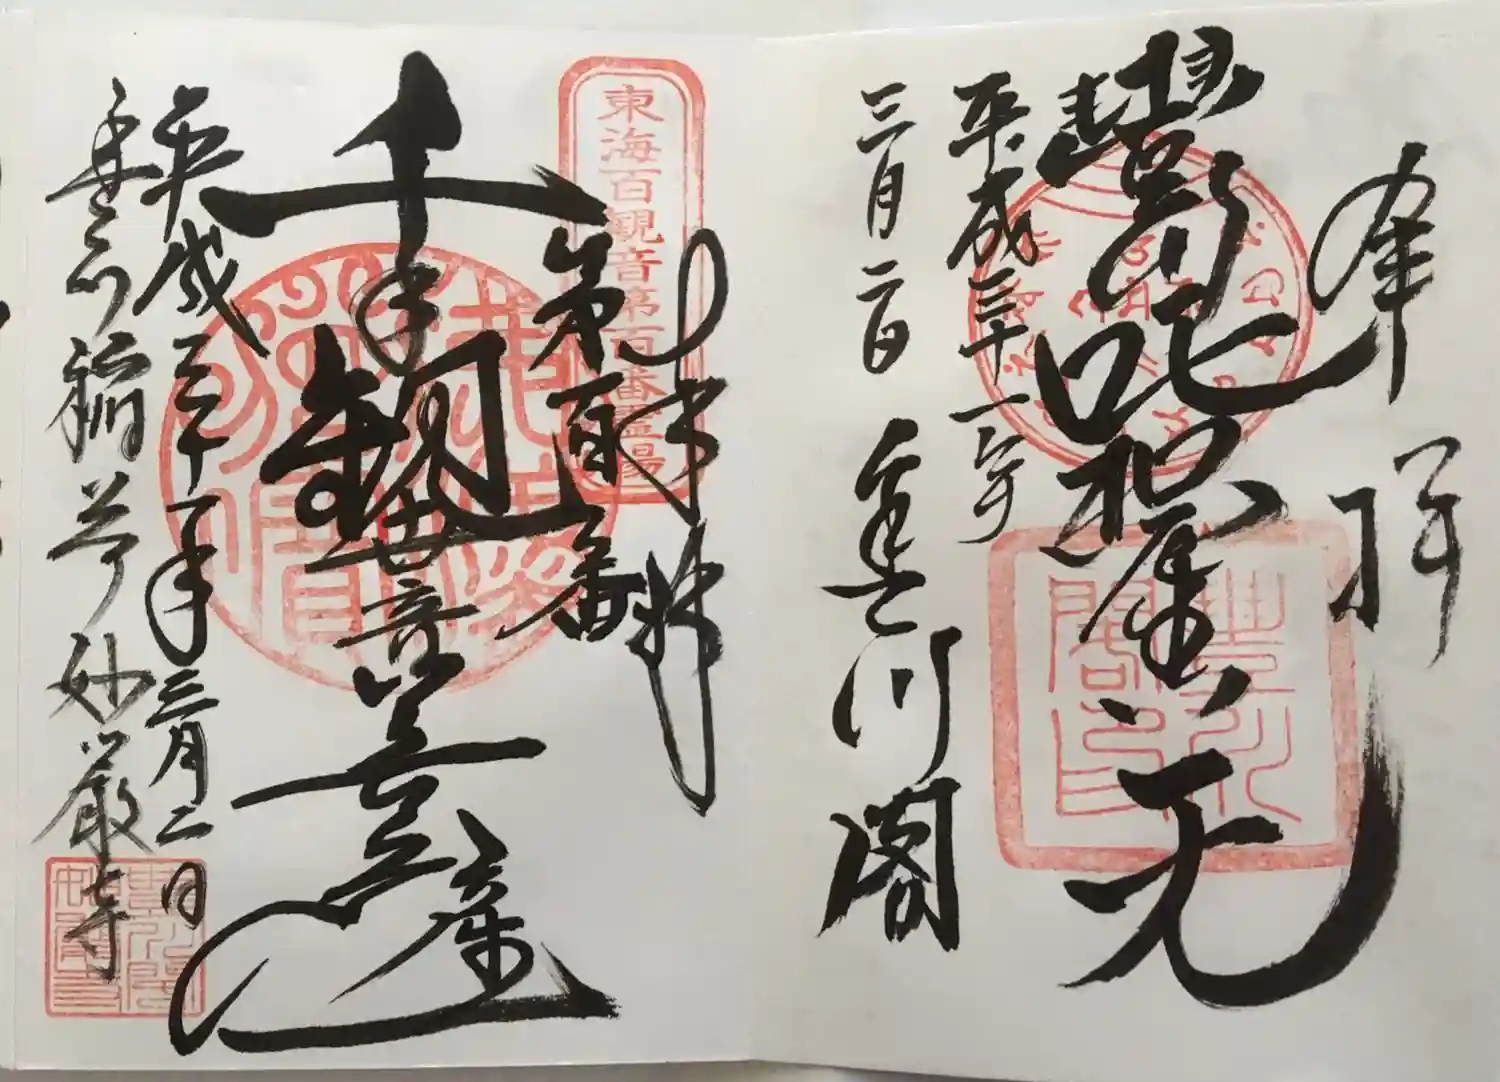 奉拝
豐川吒枳尼眞天
平成三十一年
三月二日
豊川閣
奉拝
東海百観音第百番霊場
第百番
千手観世音菩薩
平成三十一年三月二日
豊川稲荷妙厳寺